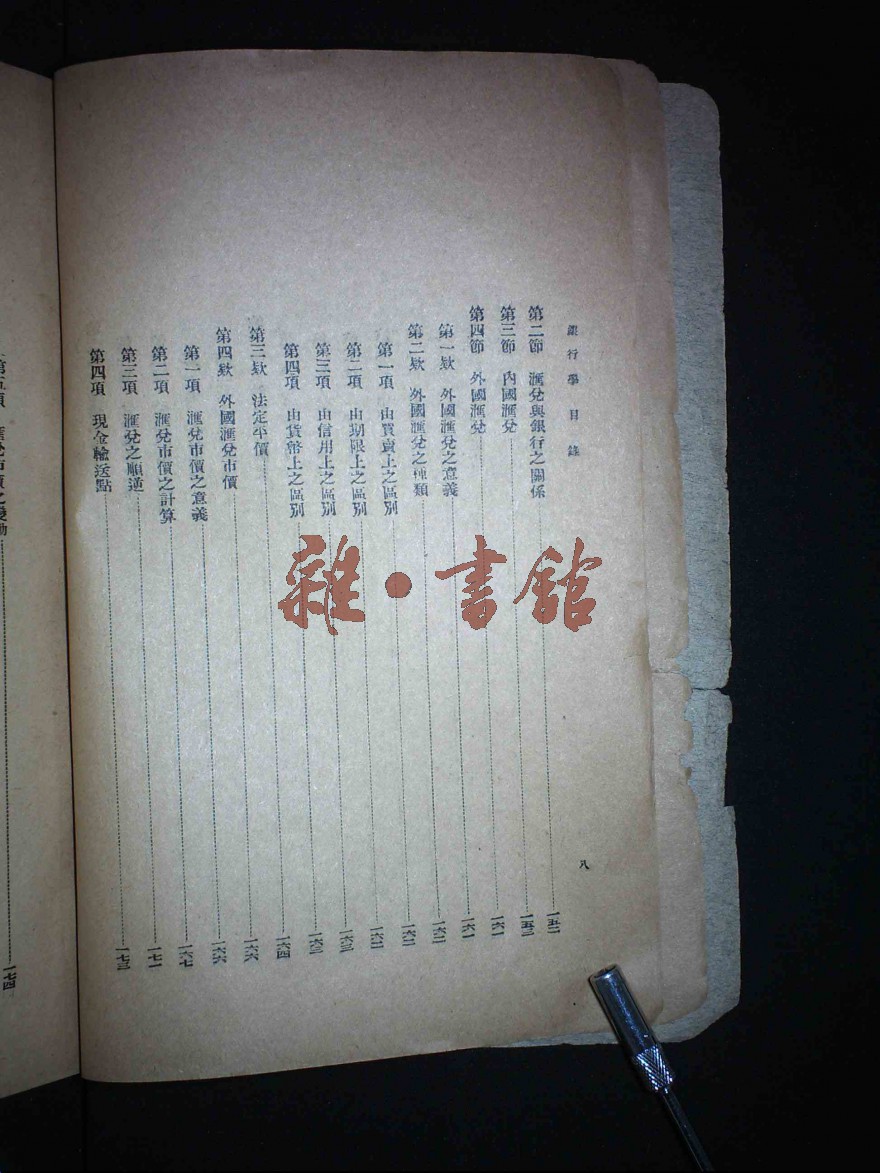 銀行學目錄
八
第二節 匯兌與銀行之關係 一五二
第三節 內國匯兌 一五三
第四節 外國匯兌 一六一
第一欵 外國匯兌之意義 一六一
第二欵 外國匯兌之種類 一六二
第一項 由買賣上之區別 一六二
第二項 由期限上之區別 一六二
第三項 由信用上之區別 一六三
第四項 由貨幣上之區別 一六三
第三欵 法定平價 一六四
第四欵 外國匯兌市價 一六六
第一項 匯兌市價之意義 一六六
第二項 匯兌市價之計算 一六七
第三項 匯兌之順逆 一七一
第四項 現金輸送點 一七三
第五項 匯兌市價之變動 一七四
雜·書館